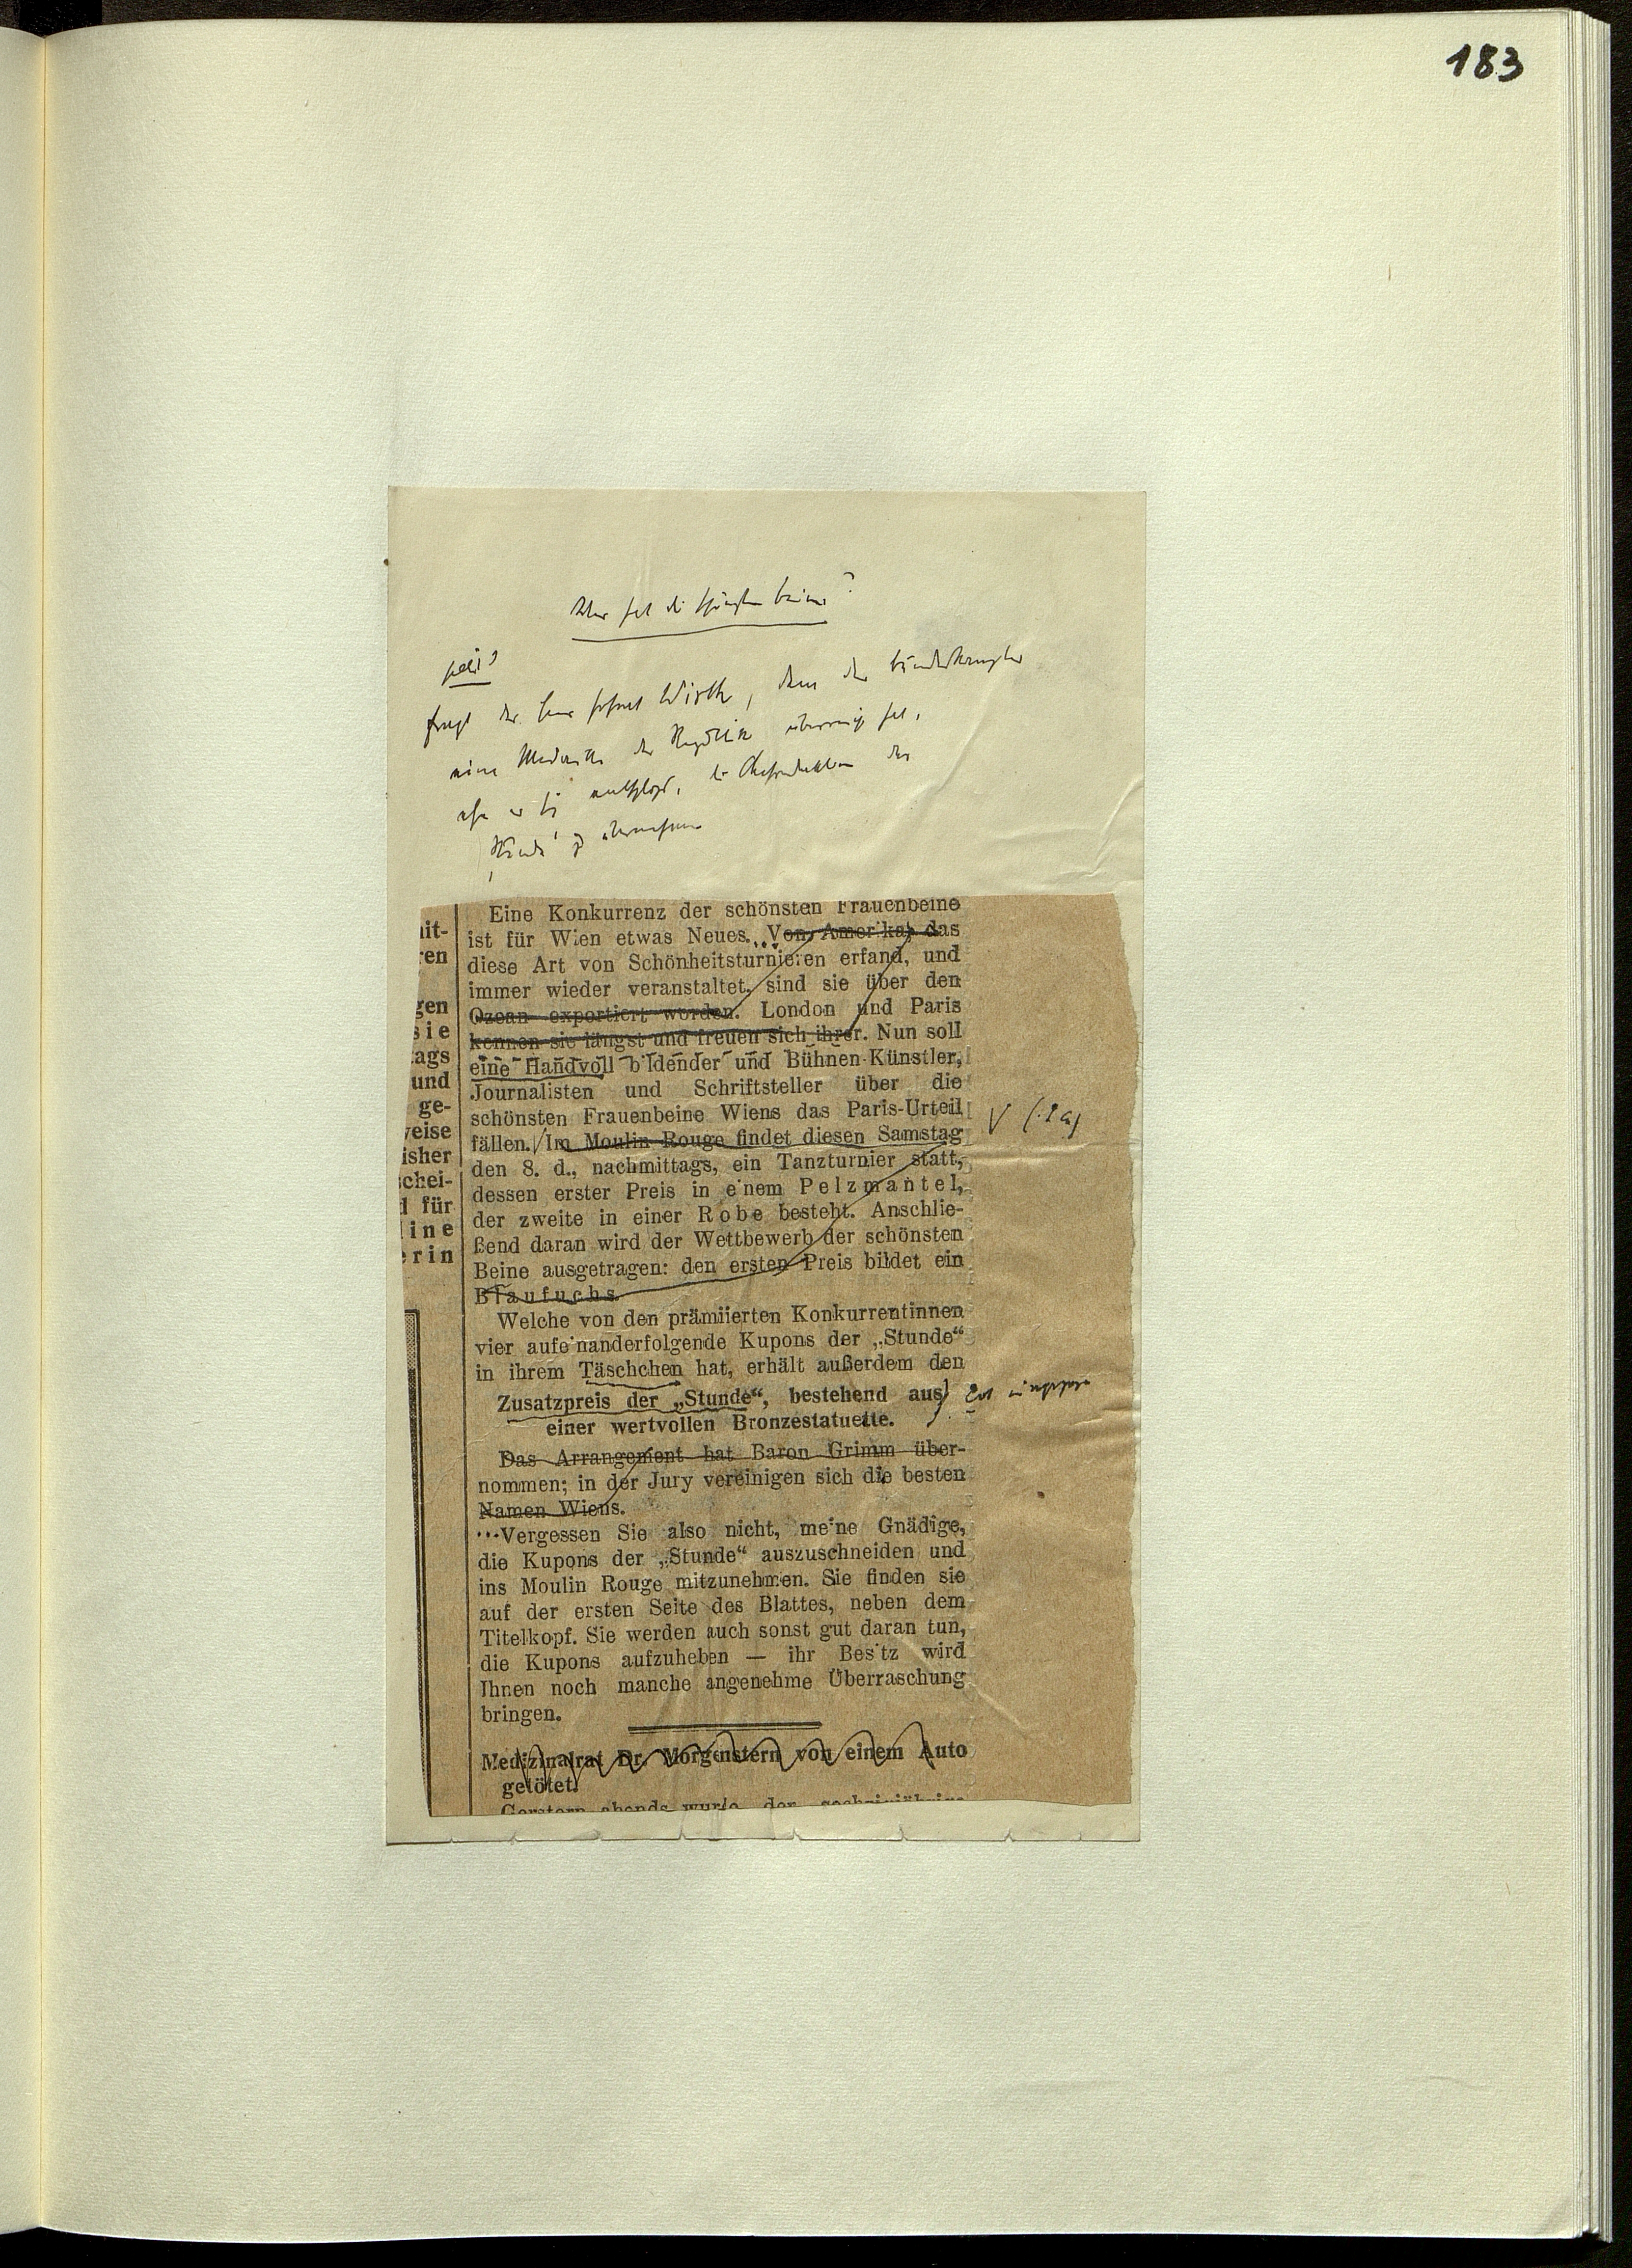 183
Wer hat die schönsten Beine?
fragt der Herr Wirth, dem der Bundeskanzler
eine Medaille der Republik überreicht hat,
ehe er sich entschloß, die Chefredaktion der
„Stunde“ zu übernehmen
Eine Konkurrenz der schönsten Frauenbeine
ist für Wien etwas Neues. Von Amerika, das
diese Art von Schönheitsturnieren erfand, und
immer wieder veranstaltet, sind sie über den
Ozean exportiert worden. London und Paris
kennen sie längst und freuen sich ihrer. Nun soll
eine Handvoll bildender und Bühnen-Künstler,
Journalisten und Schriftsteller über die
schönsten Frauenbeine Wiens das Paris-Urteil
fällen. Im Moulin Rouge findet diesen Samstag
den 8. d., nachmittags, ein Tanzturnier statt,
dessen erster Preis in einem Pelzmantel,
der zweite in einer Robe besteht. Anschlie-
ßend daran wird der Wettbewerb der schönsten
Beine ausgetragen: den ersten Preis bildet ein
Blaufuchs.
Welche von den prämiierten Konkurrentinnen
vier aufeinanderfolgende Kupons der „Stunde“
in ihrem Täschchen hat, erhält außerdem den
Zusatzpreis der „Stunde“, bestehend aus
einer wertvollen Bronzestatuette.
Das Arrangement hat Baron Grimm über-
nommen; in der Jury vereinigen sich die besten
Namen Wiens.
Vergessen Sie also nicht, meine Gnädige,
die Kupons der „Stunde“ auszuschneiden und
ins Moulin Rouge mitzunehmen. Sie finden sie
auf der ersten Seite des Blattes, neben dem
Titelkopf. Sie werden auch sonst gut daran tun,
die Kupons aufzuheben — ihr Besitz wird
Ihnen noch manche angenehme Überraschung
bringen.
Medizinalrat Dr. Morgenstern von einem Auto
getötet.
Gestern abends wurde der
ren
gen
sie
tags
und
ge-
weise
isher
schei-
d für
line
erin